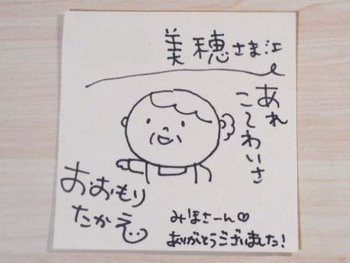 美穂さま江
あれ
こてわいさ
おおもり
たかえ
みほさーん♡
ありがとうございました!